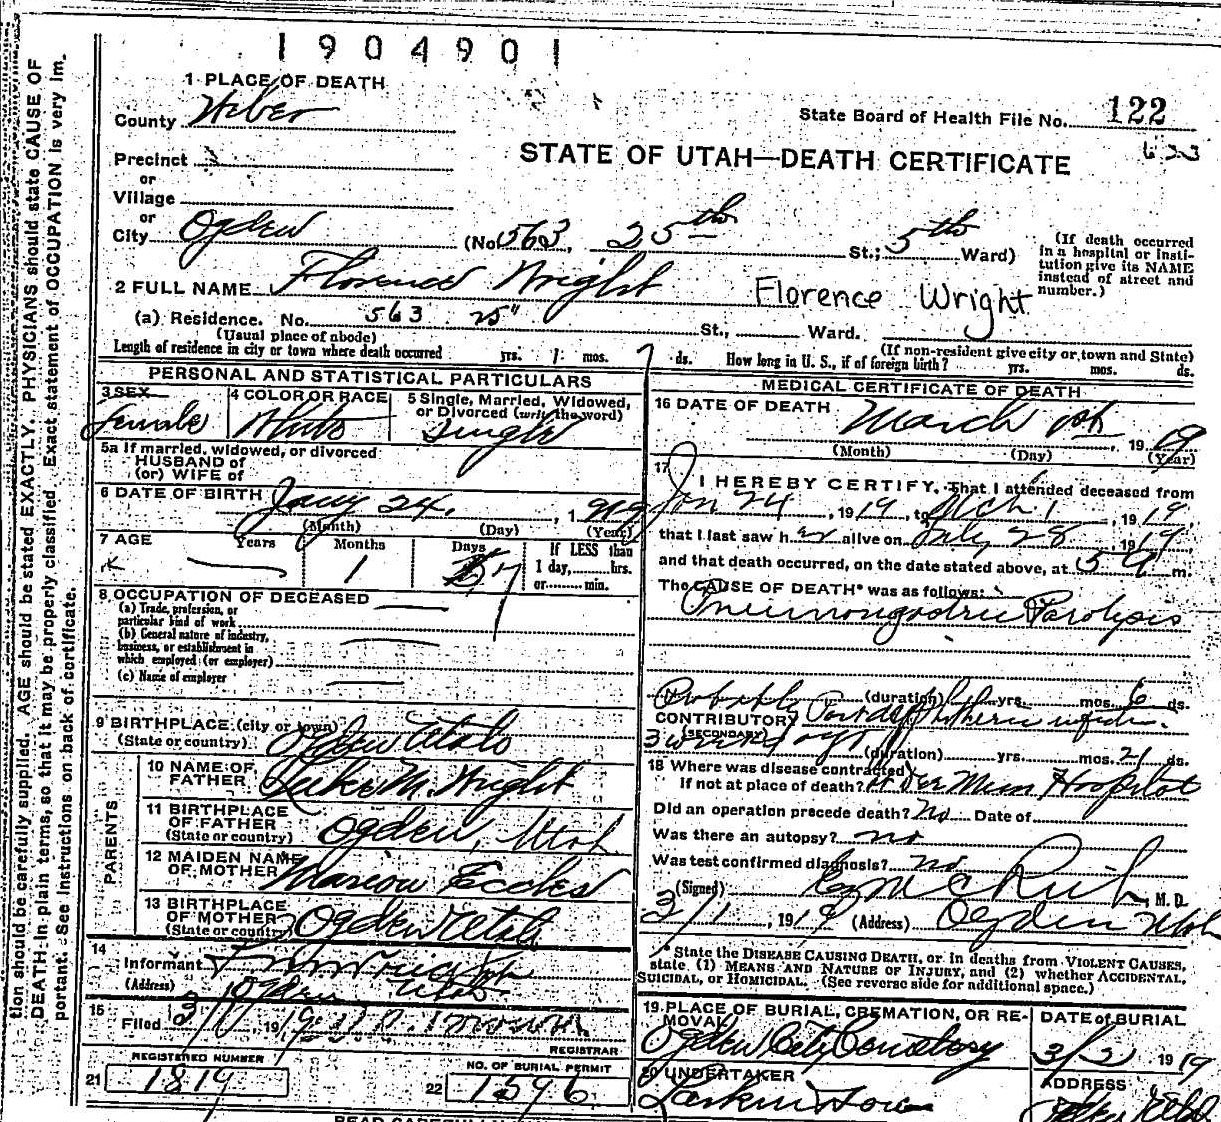 1904901
1 PLACE OF DEATH
County Weber
State Board of Health File No. 122
Precinct
STATE OF UTAH—DEATH CERTIFICATE
or
Village
or
City Ogden (No 563, 25th St.; 5th Ward)
(If death occurred in a hospital or insti-
tution give its NAME
instead of street and
number.)
2 FULL NAME Florence Wright Florence Wright
(a) Residence. No. 563 25" St., Ward.
(Usual place of abode) (If non-resident give city or town and State)
Length of residence in city or town where death occurred yrs. 1 mos. 7 ds. How long in U. S., if of foreign birth? yrs. mos. ds.
PERSONAL AND STATISTICAL PARTICULARS
3 SEX Female
4 COLOR OR RACE White
5 Single, Married, Widowed,
or Divorced (write the word)
Single
5a If married, widowed, or divorced
HUSBAND of
(or) WIFE of
6 DATE OF BIRTH Jany 24, 1919
(Month) (Day) (Year)
7 AGE Years Months Days
1 7
If LESS than
1 day, hrs.
or min.
8 OCCUPATION OF DECEASED
(a) Trade, profession, or
particular kind of work
(b) General nature of industry,
business, or establishment in
which employed (or employer)
(c) Name of employer
9 BIRTHPLACE (city or town)
(State or country) Ogden Utah
PARENTS
10 NAME OF
FATHER Luke M. Wright
11 BIRTHPLACE
OF FATHER
(State or country) Ogden, Utah
12 MAIDEN NAME
OF MOTHER Marion Eccles
13 BIRTHPLACE
OF MOTHER
(State or country) Ogden Utah
14
Informant
(Address) Ogden Utah
15
Filed 3/ 1919
REGISTRAR
REGISTERED NUMBER
21 1819
NO. OF BURIAL PERMIT
22 1596
MEDICAL CERTIFICATE OF DEATH
16 DATE OF DEATH March 1st, 1919
(Month) (Day) (Year)
17
I HEREBY CERTIFY, That I attended deceased from
Jan 24, 1919, to Mch 1, 1919,
that I last saw her alive on 28, 1919
and that death occurred, on the date stated above, at 5 A m.
The CAUSE OF DEATH* was as follows:
Pneumongastric Paralysis
(duration) yrs. mos. 6 ds.
CONTRIBUTORY
(SECONDARY)
3 weeks (duration) yrs. mos. 21 ds.
18 Where was disease contracted
If not at place of death? Dee Mem Hospital
Did an operation precede death? No Date of
Was there an autopsy? no
Was test confirmed diagnosis? no
(Signed) M. D.
3/1, 1919 (Address) Ogden Utah
* State the DISEASE CAUSING DEATH, or in deaths from VIOLENT CAUSES,
state (1) MEANS AND NATURE OF INJURY, and (2) whether ACCIDENTAL,
SUICIDAL, or HOMICIDAL. (See reverse side for additional space.)
19 PLACE OF BURIAL, CREMATION, OR RE-
MOVAL
Ogden City Cemetery
DATE of BURIAL
3/2 1919
20 UNDERTAKER
Larkin & Sons
ADDRESS
tion should be carefully supplied. AGE should be stated EXACTLY. PHYSICIANS should state CAUSE OF
DEATH in plain terms, so that it may be properly classified. Exact statement of OCCUPATION is very im-
portant. See instructions on back of certificate.